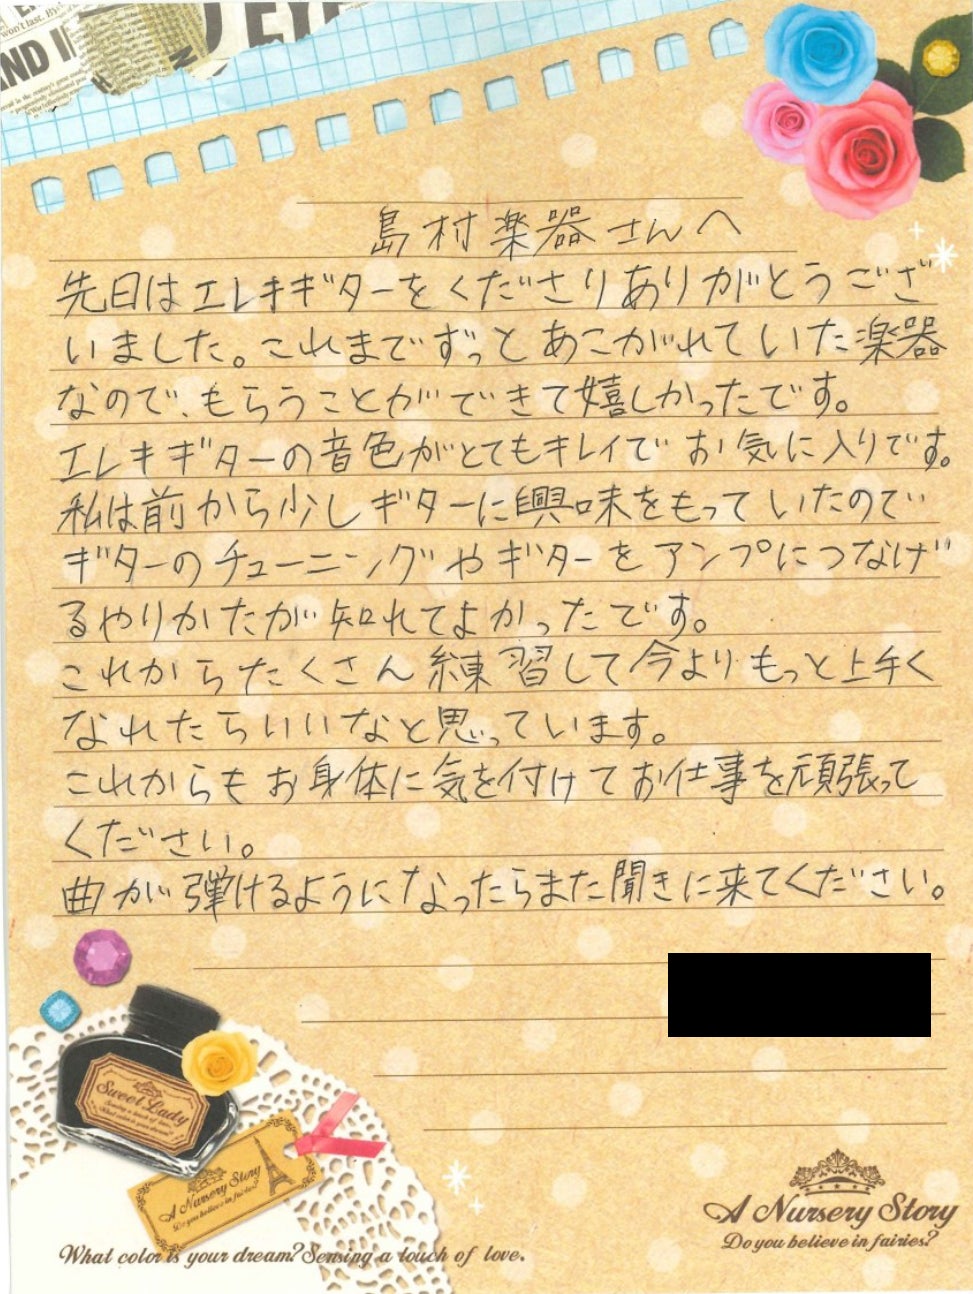 AND I
D EYE
won't last. By
島村楽器さんへ
先日はエレキギターをくださりありがとうござ
いました。これまでずっとあこがれていた楽器
なので、もらうことができて嬉しかったです。
エレキギターの音色がとてもキレイでお気に入りです。
私は前から少しギターに興味をもっていたので
ギターのチューニングやギターをアンプにつなげ
るやりかたが知れてよかったです。
これからたくさん練習して今よりもっと上手く
なれたらいいなと思っています。
これからもお身体に気を付けてお仕事を頑張って
ください。
曲が弾けるようになったらまた聞きに来てください。
Sweet Lady
A Nursery Story
Do you believe in fairies?
What color is your dream? Sensing a touch of love.
A Nursery Story
Do you believe in fairies?